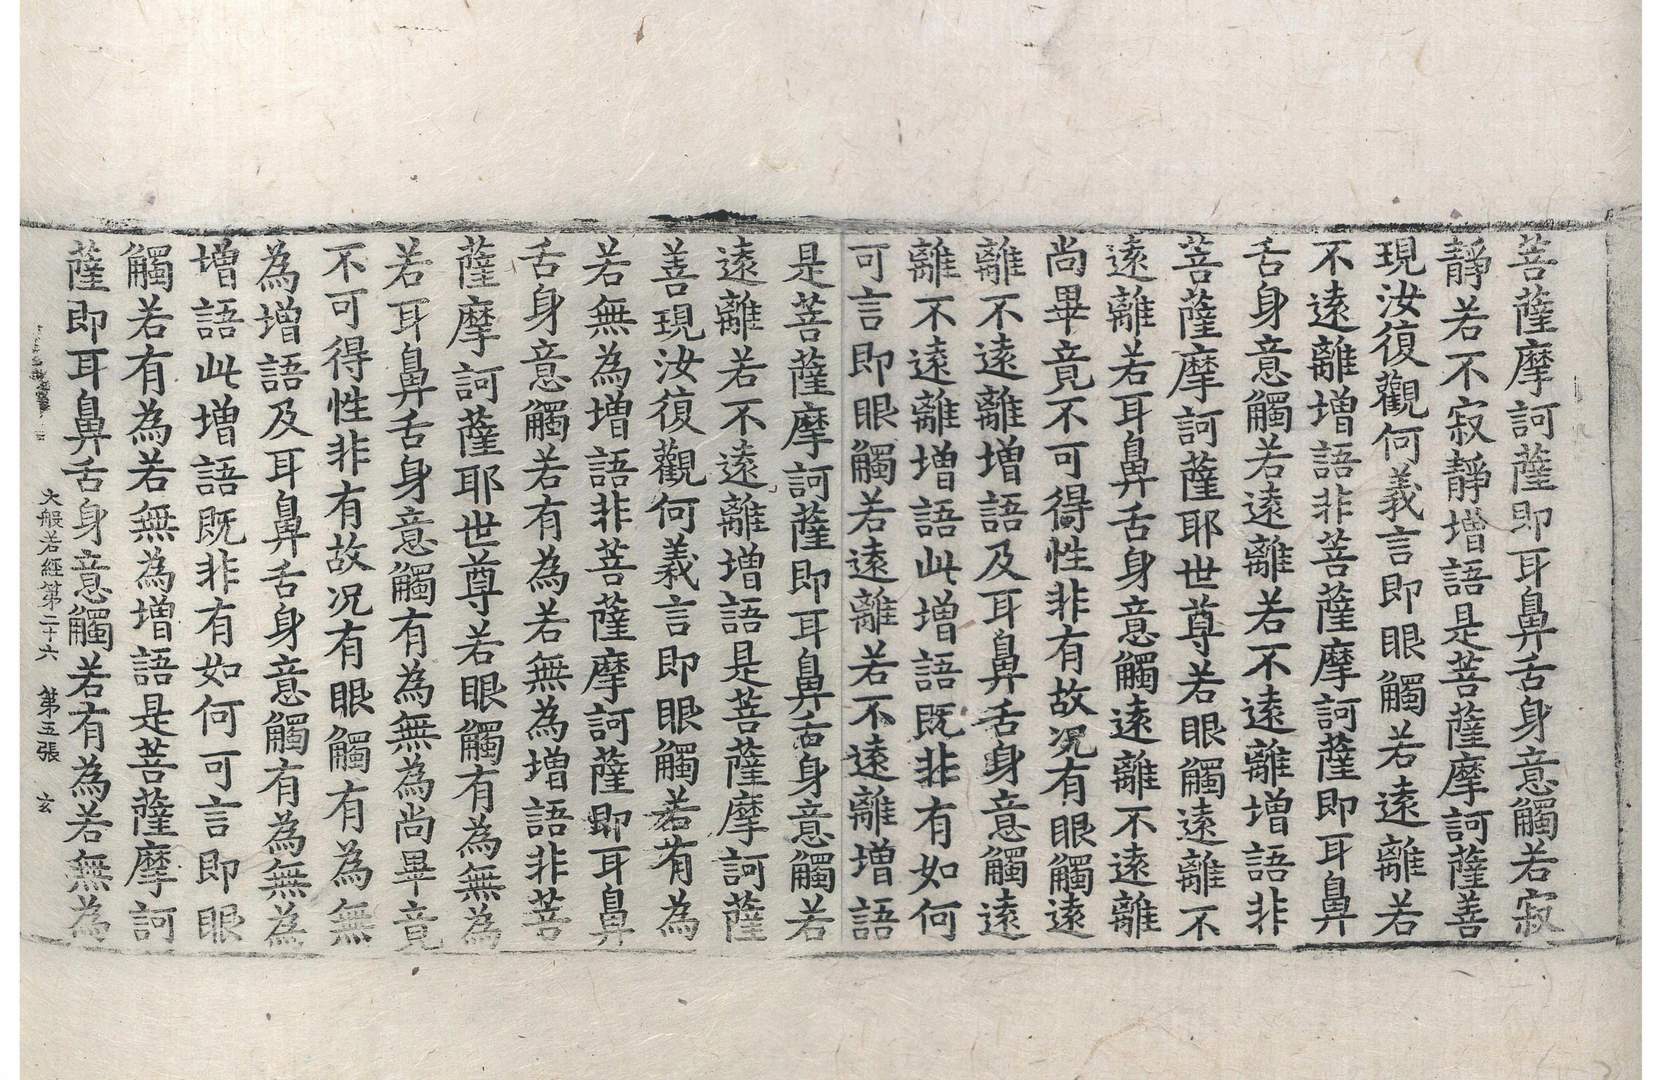 菩薩摩訶薩即耳鼻舌身意觸若寂
靜若不寂靜增語是菩薩摩訶薩善
現汝復觀何義言即眼觸若遠離若
不遠離增語非菩薩摩訶薩即耳鼻
舌身意觸若遠離若不遠離增語非
菩薩摩訶薩耶世尊若眼觸遠離不
遠離若耳鼻舌身意觸遠離不遠離
尚畢竟不可得性非有故况有眼觸遠
離不遠離增語及耳鼻舌身意觸遠
離不遠離增語此增語既非有如何
可言即眼觸若遠離若不遠離增語
是菩薩摩訶薩即耳鼻舌身意觸若
遠離若不遠離增語是菩薩摩訶薩
善現汝復觀何義言即眼觸若有為
若無為增語非菩薩摩訶薩即耳鼻
舌身意觸若有為若無為增語非菩
薩摩訶薩耶世尊若眼觸有為無為
若耳鼻舌身意觸有為無為尚畢竟
不可得性非有故况有眼觸有為無
為增語及耳鼻舌身意觸有為無為
增語此增語既非有如何可言即眼
觸若有為若無為增語是菩薩摩訶
薩即耳鼻舌身意觸若有為若無為
大般若經第二十六 第五張 玄